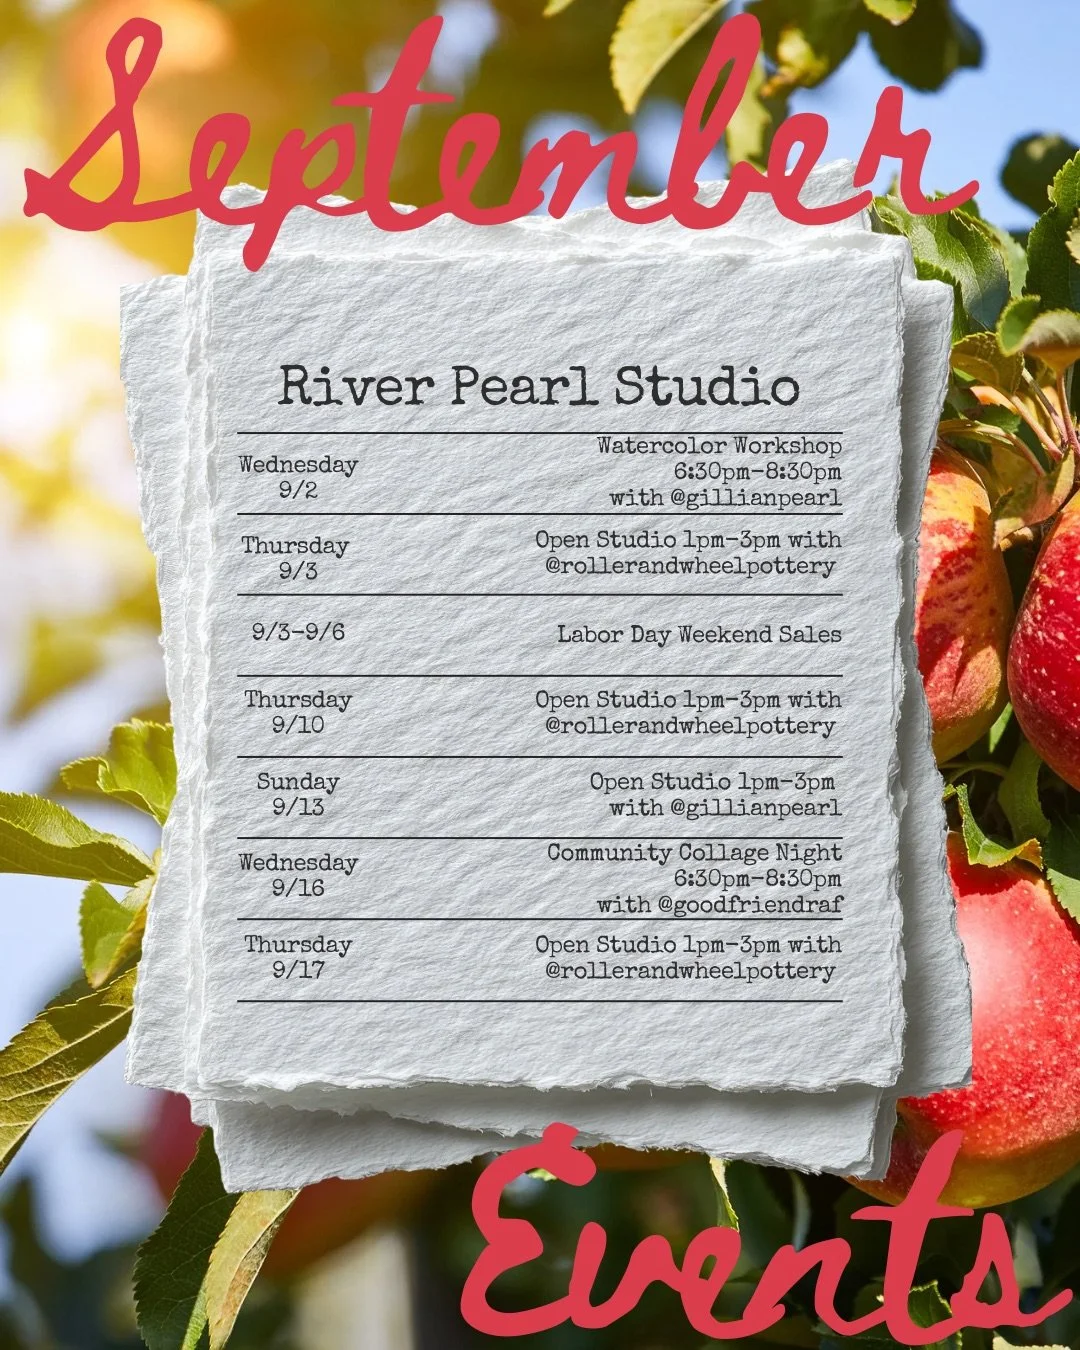 September
River Pearl Studio
Wednesday
9/2
Watercolor Workshop
6:30pm-8:30pm
with @gillianpearl
Thursday
9/3
Open Studio 1pm-3pm with
@rollerandwheelpottery
9/3-9/6
Labor Day Weekend Sales
Thursday
9/10
Open Studio 1pm-3pm with
@rollerandwheelpottery
Sunday
9/13
Open Studio 1pm-3pm
with @gillianpearl
Wednesday
9/16
Community Collage Night
6:30pm-8:30pm
with @goodfriendraf
Thursday
9/17
Open Studio 1pm-3pm with
@rollerandwheelpottery
Events